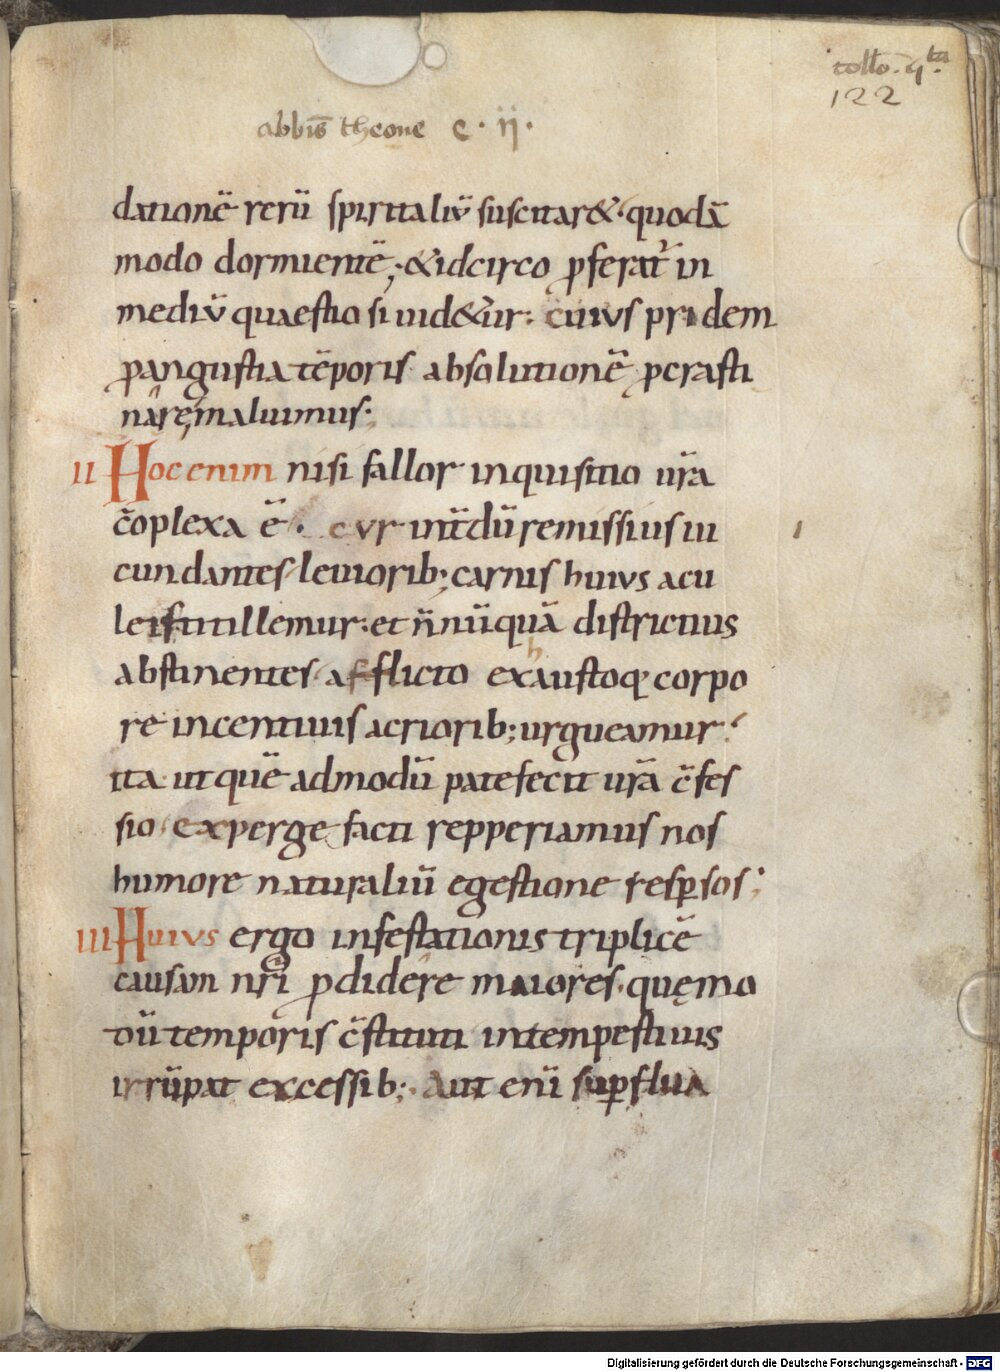 collo. 4ta
122
abbis̄ theone c. ii.
dationē rerū spiritaliū suscitar&. quodā
modo dormientē; & idcirco p̱ferat̄ in
mediū quaestio si uid&ur: cuius pridem
p̱angustia tēporis absolutionē p̱crasti
nare maluimus;
II Hoc enim nisi fallor inquisitio ur̄a
c̄oplexa ē. cur int̄dū remissius iu
cundantes leuiorib; carnis huius acu
leis titillemur. et n̄nūquā districtius
abstinentes afflicto exhaustoq; corpo
re incentiuis acriorib; urgueamur?
ita ut quē admodū patefecit ur̄a c̄fes
sio experge facti repperiamus nos
humore naturaliū egestione resp̱sos;
III Huius ergo infestationis triplicē
causam nr̄i p̱didere maiores. quę mo
dū temporis c̄stituti intempestiuis
irrūpat excessib; Aut enī sup̱flua
Digitalisierung gefördert durch die Deutsche Forschungsgemeinschaft - DFG